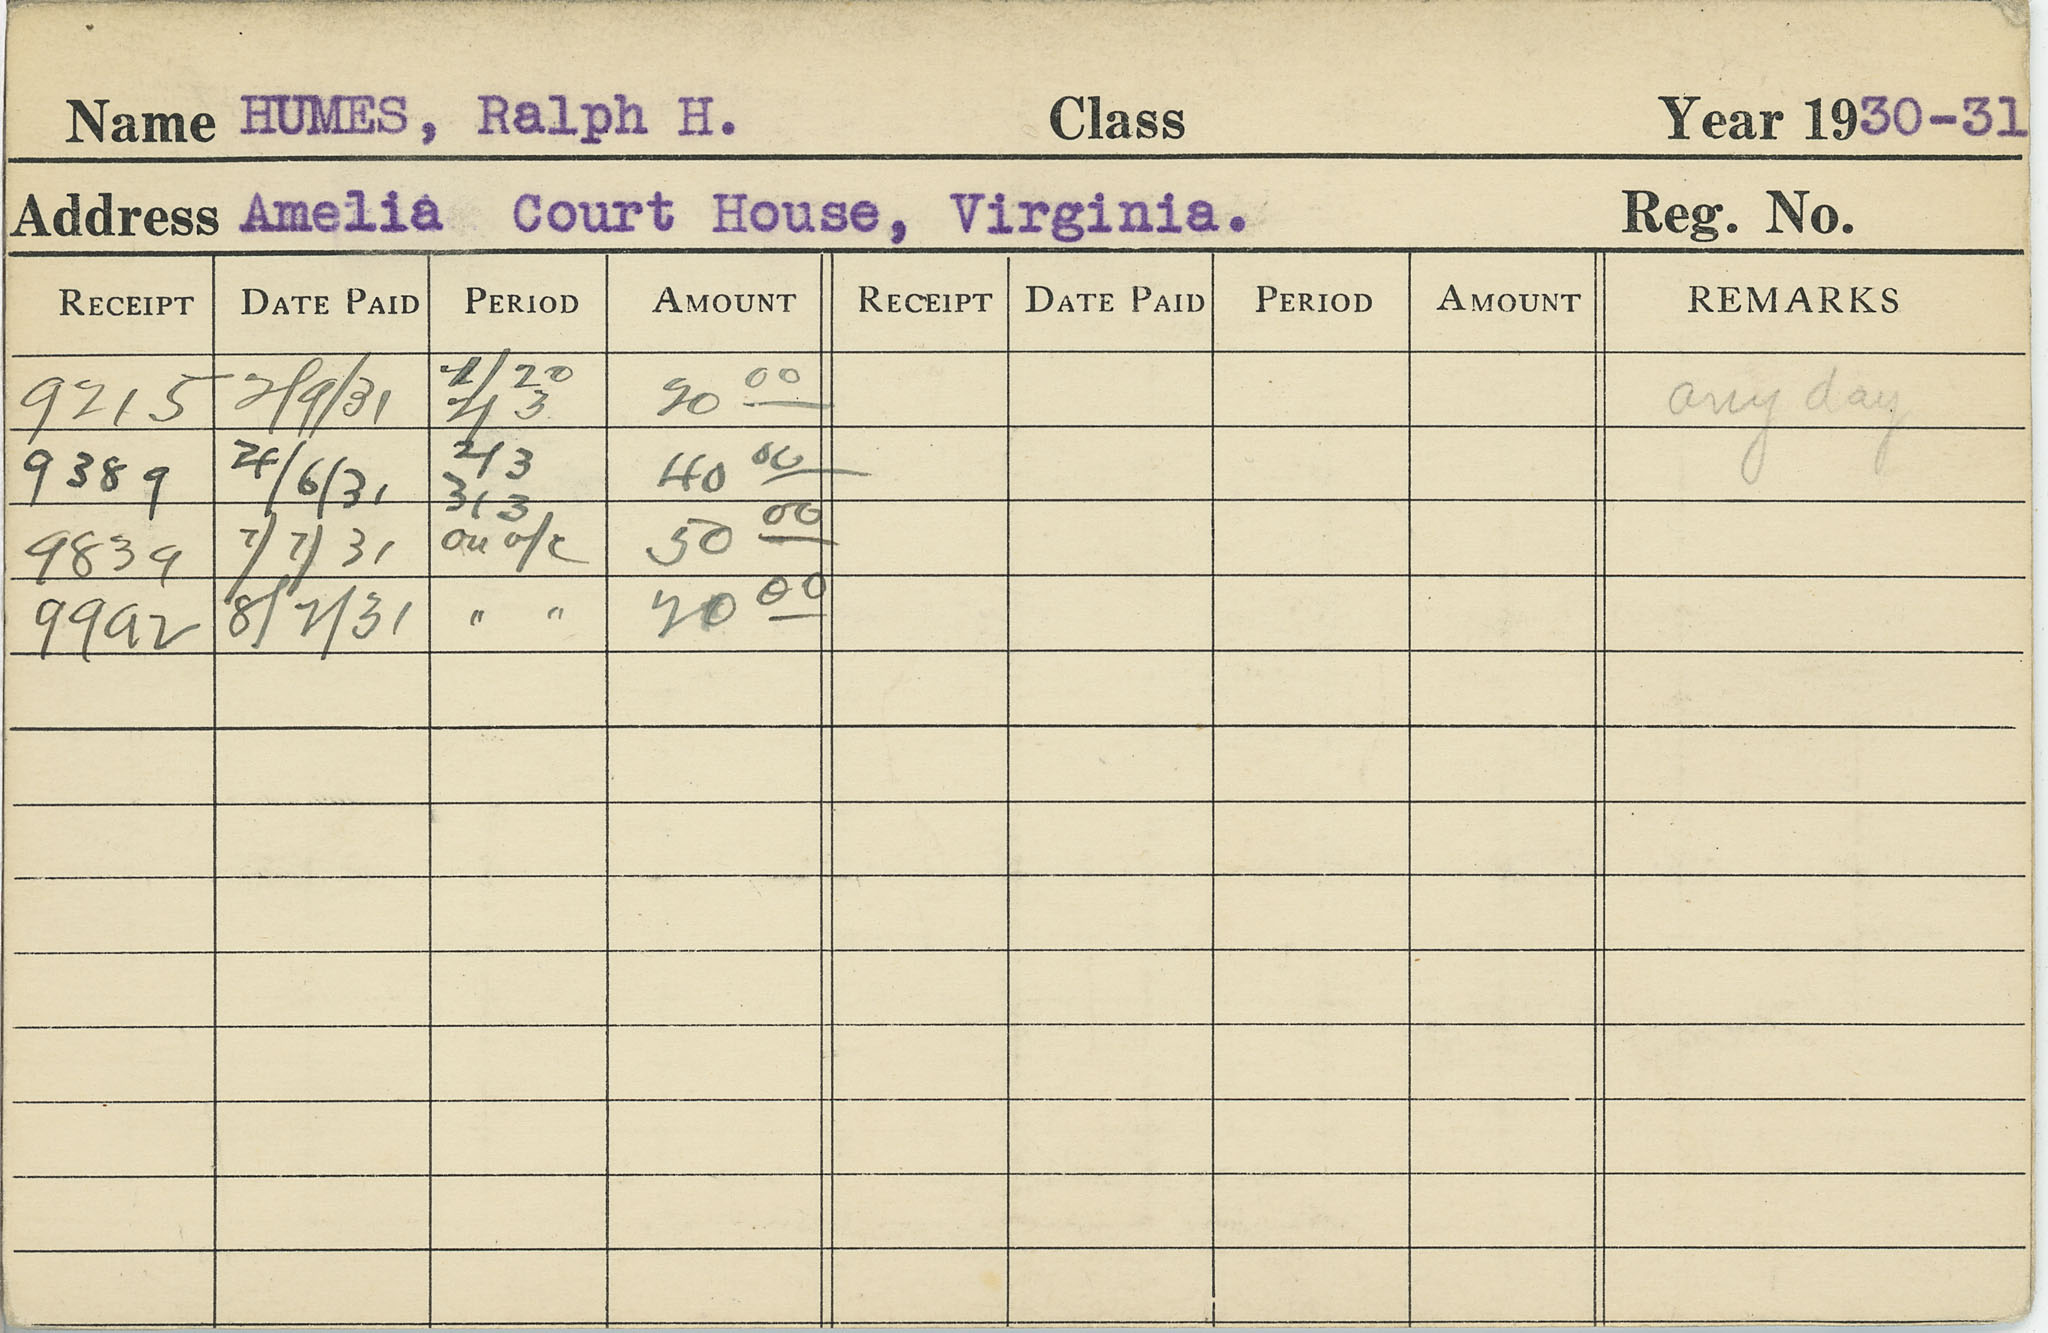 Name HUMES, Ralph H. Class Year 1930-31
Address Amelia Court House, Virginia. Reg. No.
RECEIPT DATE PAID PERIOD AMOUNT RECEIPT DATE PAID PERIOD AMOUNT REMARKS
9215 2/9/31 1/20 2/3 20 00 any day
9389 4/6/31 2/3 3/3 40 00
9839 7/7/31 on a/c 50 00
9992 8/7/31 " " 20 00